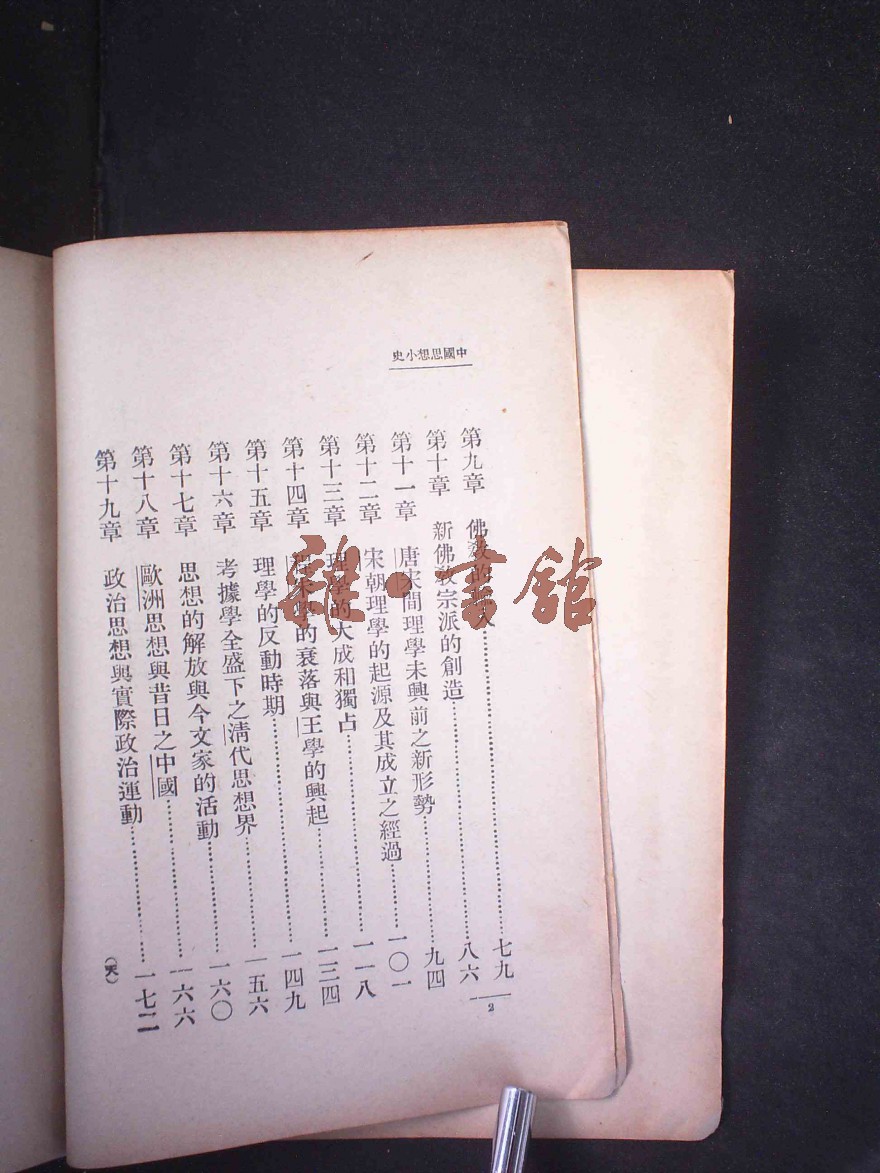 中國思想小史
第九章 佛教的輸入……七九
第十章 新佛教宗派的創造……八六
第十一章 唐宋間理學未興前之新形勢……九四
第十二章 宋朝理學的起源及其成立之經過……一〇一
第十三章 理學的大成和獨占……一一八
第十四章 程朱學的衰落與王學的興起……一三四
第十五章 理學的反動時期……一四九
第十六章 考據學全盛下之清代思想界……一五六
第十七章 思想的解放與今文家的活動……一六〇
第十八章 歐洲思想與昔日之中國……一六六
第十九章 政治思想與實際政治運動……一七二
2
雜·書館